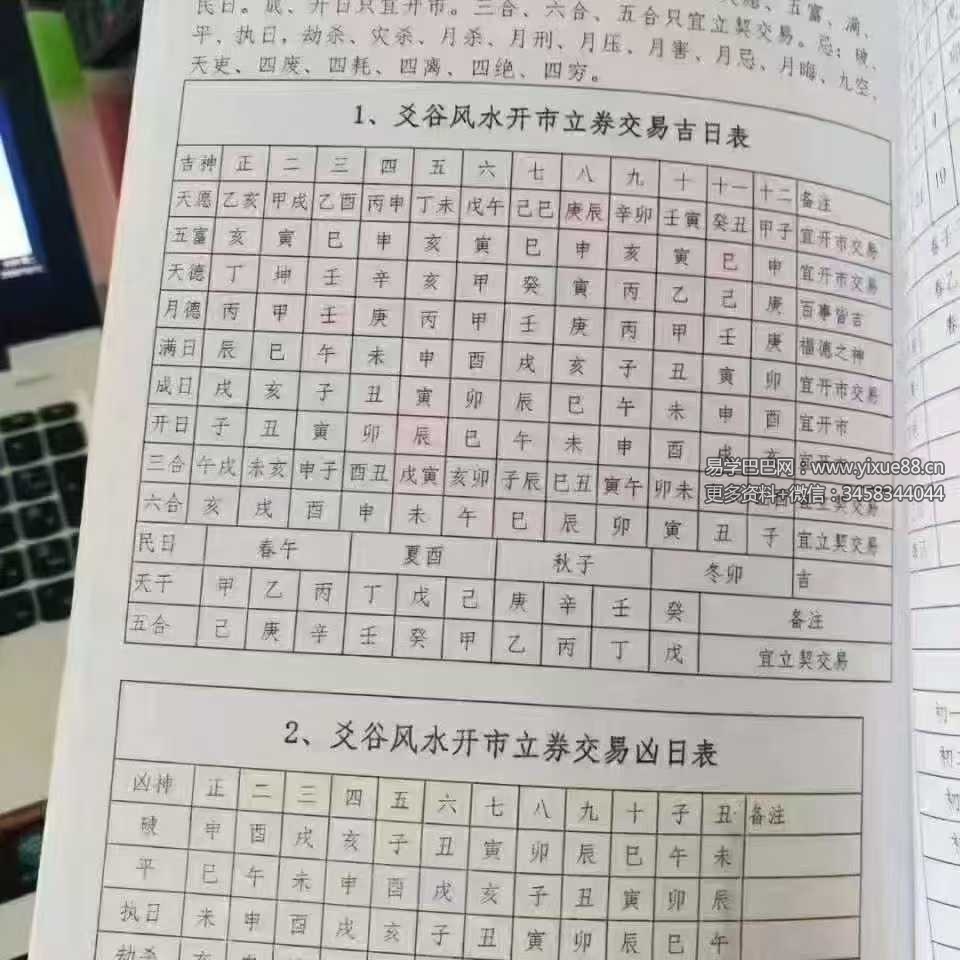 民日。成、开日只宜开市。三合、六合、五合只宜立契交易。忌：破、
平、执日，劫杀、灾杀、月杀、月刑、月压、月害、月忌、月晦、九空、
天吏、四废、四耗、四离、四绝、四穷。
1、爻谷风水开市立券交易吉日表
吉神 正 二 三 四 五 六 七 八 九 十 十一 十二 备注
天愿 乙亥 甲戌 乙酉 丙申 丁未 戊午 己巳 庚辰 辛卯 壬寅 癸丑 甲子 宜开市交易
五富 亥 寅 巳 申 亥 寅 巳 申 亥 寅 巳 申 宜开市交易
天德 丁 坤 壬 辛 亥 甲 癸 寅 丙 乙 己 庚 百事皆吉
月德 丙 甲 壬 庚 丙 甲 壬 庚 丙 甲 壬 庚 福德之神
满日 辰 巳 午 未 申 酉 戌 亥 子 丑 寅 卯 宜开市交易
成日 戌 亥 子 丑 寅 卯 辰 巳 午 未 申 酉 宜开市
开日 子 丑 寅 卯 辰 巳 午 未 申 酉 戌 亥
三合 午戌 未亥 申子 酉丑 戌寅 亥卯 子辰 巳丑 寅午 卯未 宜立契交易
六合 亥 戌 酉 申 未 午 巳 辰 卯 寅 丑 子 宜立契交易
民日 春午 夏酉 秋子 冬卯 吉
天干 甲 乙 丙 丁 戊 己 庚 辛 壬 癸 备注
五合 己 庚 辛 壬 癸 甲 乙 丙 丁 戊 宜立契交易
易学巴巴网：www.yixue88.cn
更多资料+微信：3458344044
2、爻谷风水开市立券交易凶日表
凶神 正 二 三 四 五 六 七 八 九 十 子 丑 备注
破 申 酉 戌 亥 子 丑 寅 卯 辰 巳 午 未
平 巳 午 未 申 酉 戌 亥 子 丑 寅 卯 辰
执日 未 申 酉 戌 亥 子 丑 寅 卯 辰 巳 午
劫杀
10
春子
春乙
初一